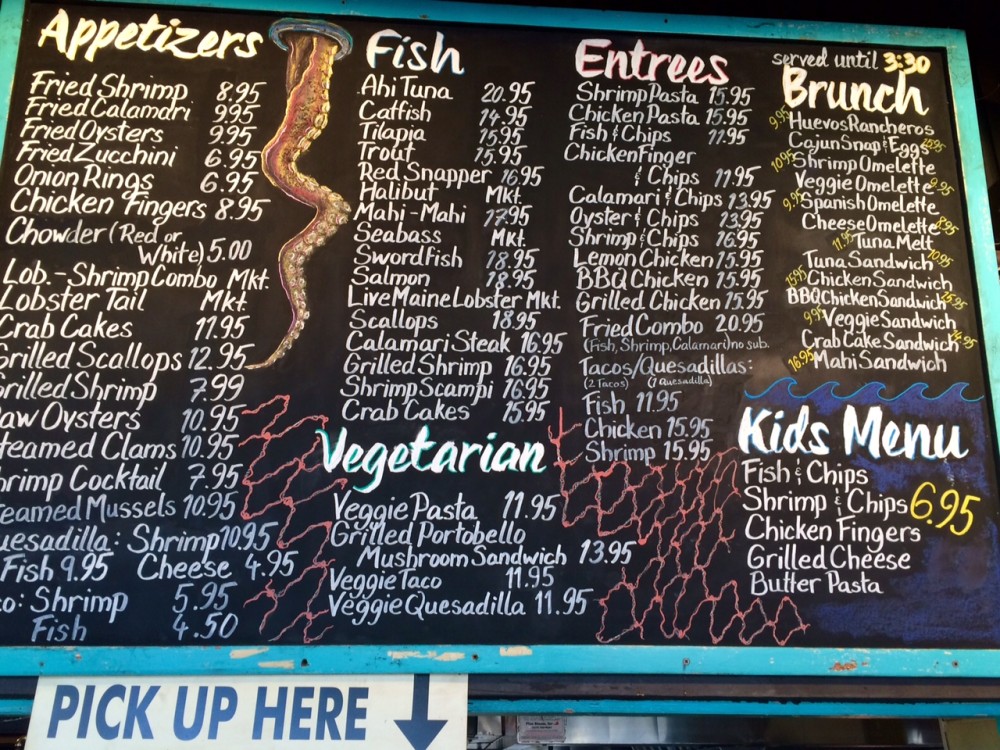 Appetizers
Fried Shrimp 8.95
Fried Calamari 9.95
Fried Oysters 9.95
Fried Zucchini 6.95
Onion Rings 6.95
Chicken Fingers 8.95
Chowder (Red or
White) 5.00
Lob.-Shrimp Combo Mkt.
Lobster Tail Mkt.
Crab Cakes 11.95
Grilled Scallops 12.95
Grilled Shrimp 7.99
Raw Oysters 10.95
Steamed Clams 10.95
Shrimp Cocktail 7.95
Steamed Mussels 10.95
Quesadilla: Shrimp 10.95
Fish 9.95 Cheese 4.95
co: Shrimp 5.95
Fish 4.50
Fish
Ahi Tuna 20.95
Catfish 14.95
Tilapia 15.95
Trout 15.95
Red Snapper 16.95
Halibut Mkt.
Mahi-Mahi 17.95
Seabass Mkt.
Swordfish 18.95
Salmon 18.95
Live Maine Lobster Mkt.
Scallops 18.95
Calamari Steak 16.95
Grilled Shrimp 16.95
Shrimp Scampi 16.95
Crab Cakes 15.95
Vegetarian
Veggie Pasta 11.95
Grilled Portobello
Mushroom Sandwich 13.95
Veggie Taco 11.95
Veggie Quesadilla 11.95
Entrees
Shrimp Pasta 15.95
Chicken Pasta 15.95
Fish & Chips 11.95
Chicken Finger
& Chips 11.95
Calamari & Chips 13.95
Oyster & Chips 13.95
Shrimp & Chips 16.95
Lemon Chicken 15.95
BBQ Chicken 15.95
Grilled Chicken 15.95
Fried Combo 20.95
(Fish, Shrimp, Calamari) no sub.
Tacos/Quesadillas:
(2 Tacos) (1 Quesadilla)
Fish 11.95
Chicken 15.95
Shrimp 15.95
served until 3:30
Brunch
9.95 Huevos Rancheros
Cajun Snap & Eggs
10.95 Shrimp Omelette
Veggie Omelette 9.95
9.95 Spanish Omelette
Cheese Omelette 8.95
11.95 Tuna Melt
Tuna Sandwich 10.95
15.95 Chicken Sandwich
BBQ Chicken Sandwich 15.95
9.95 Veggie Sandwich
Crab Cake Sandwich 14.95
16.95 Mahi Sandwich
Kids Menu
Fish & Chips
Shrimp & Chips 6.95
Chicken Fingers
Grilled Cheese
Butter Pasta
PICK UP HERE